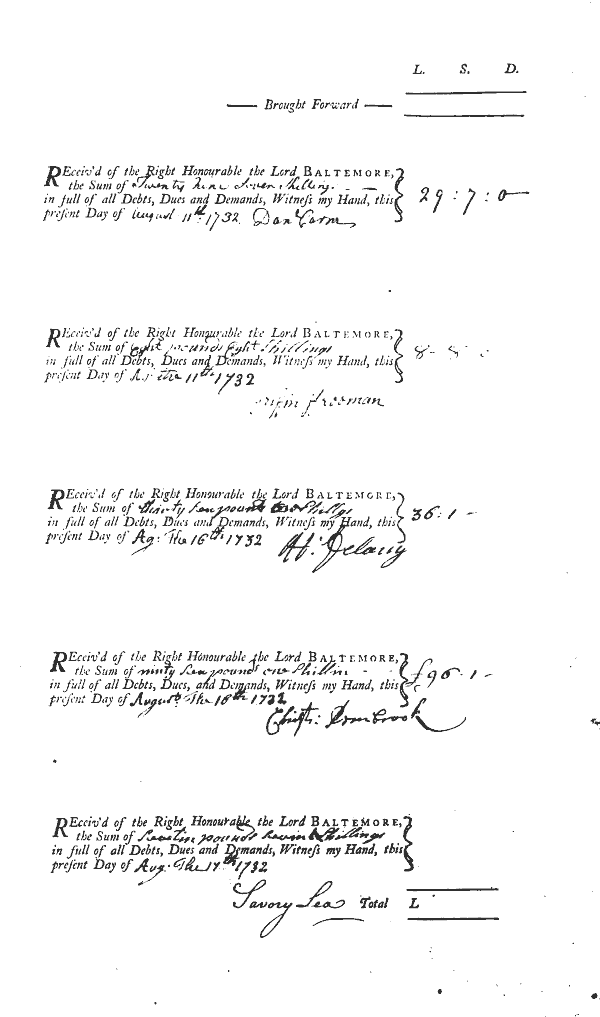 L. S. D.
Brought Forward
REceiv'd of the Right Honourable the Lord BALTEMORE,
the Sum of Twenty nine Seven Shillings
in full of all Debts, Dues and Demands, Witneſs my Hand, this
preſent Day of August 11th 1732 Dan
29 : 7 : 0
REceiv'd of the Right Honourable the Lord BALTEMORE,
the Sum of Eight pounds Eight Shillings
in full of all Debts, Dues and Demands, Witneſs my Hand, this
preſent Day of the 11th 1732
8 - 8
freeman
REceiv'd of the Right Honourable the Lord BALTEMORE,
the Sum of pound
in full of all Debts, Dues and Demands, Witneſs my Hand, this
preſent Day of Ag: The 16th 1732
36 : 1 -
Delany
REceiv'd of the Right Honourable the Lord BALTEMORE,
the Sum of ninty pounds one Shillin
in full of all Debts, Dues, and Demands, Witneſs my Hand, this
preſent Day of August The 16th 1732
£96 . 1 -
REceiv'd of the Right Honourable the Lord BALTEMORE,
the Sum of pounds Shillings
in full of all Debts, Dues and Demands, Witneſs my Hand, this
preſent Day of Aug. The 17th 1732
Savory Lea Total L